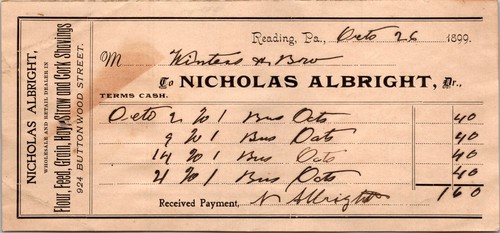 NICHOLAS ALBRIGHT,
WHOLESALE AND RETAIL DEALER IN
Flour, Feed, Grain, Hay, Straw and Cork Shavings
924 BUTTONWOOD STREET.
Reading, Pa., Octo 26 1899.
M Winters & Bro
To NICHOLAS ALBRIGHT, Dr.,
TERMS CASH.
Octo 2 To 1 Bus Oats 40
9 To 1 Bus Oats 40
14 To 1 Bus Oats 40
21 To 1 Bus Oats 40
160
Received Payment, N Albright